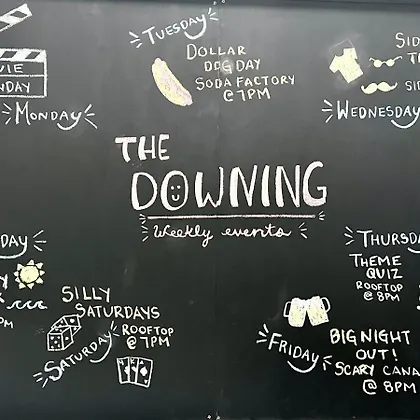 VIE
NDAY
MONDAY
TUESDAY
DOLLAR
DOG DAY
SODA FACTORY
@ 7PM
SID
SID
WEDNESDAY
THE
DOWNING
Weekly events
DAY
Y
PM
SILLY
SATURDAYS
ROOFTOP
@ 7PM
SATURDAY
THURSDA
THEME
QUIZ
ROOFTOP
@ 8PM
FRIDAY
BIG NIGHT
OUT!
SCARY CANA
@ 8PM